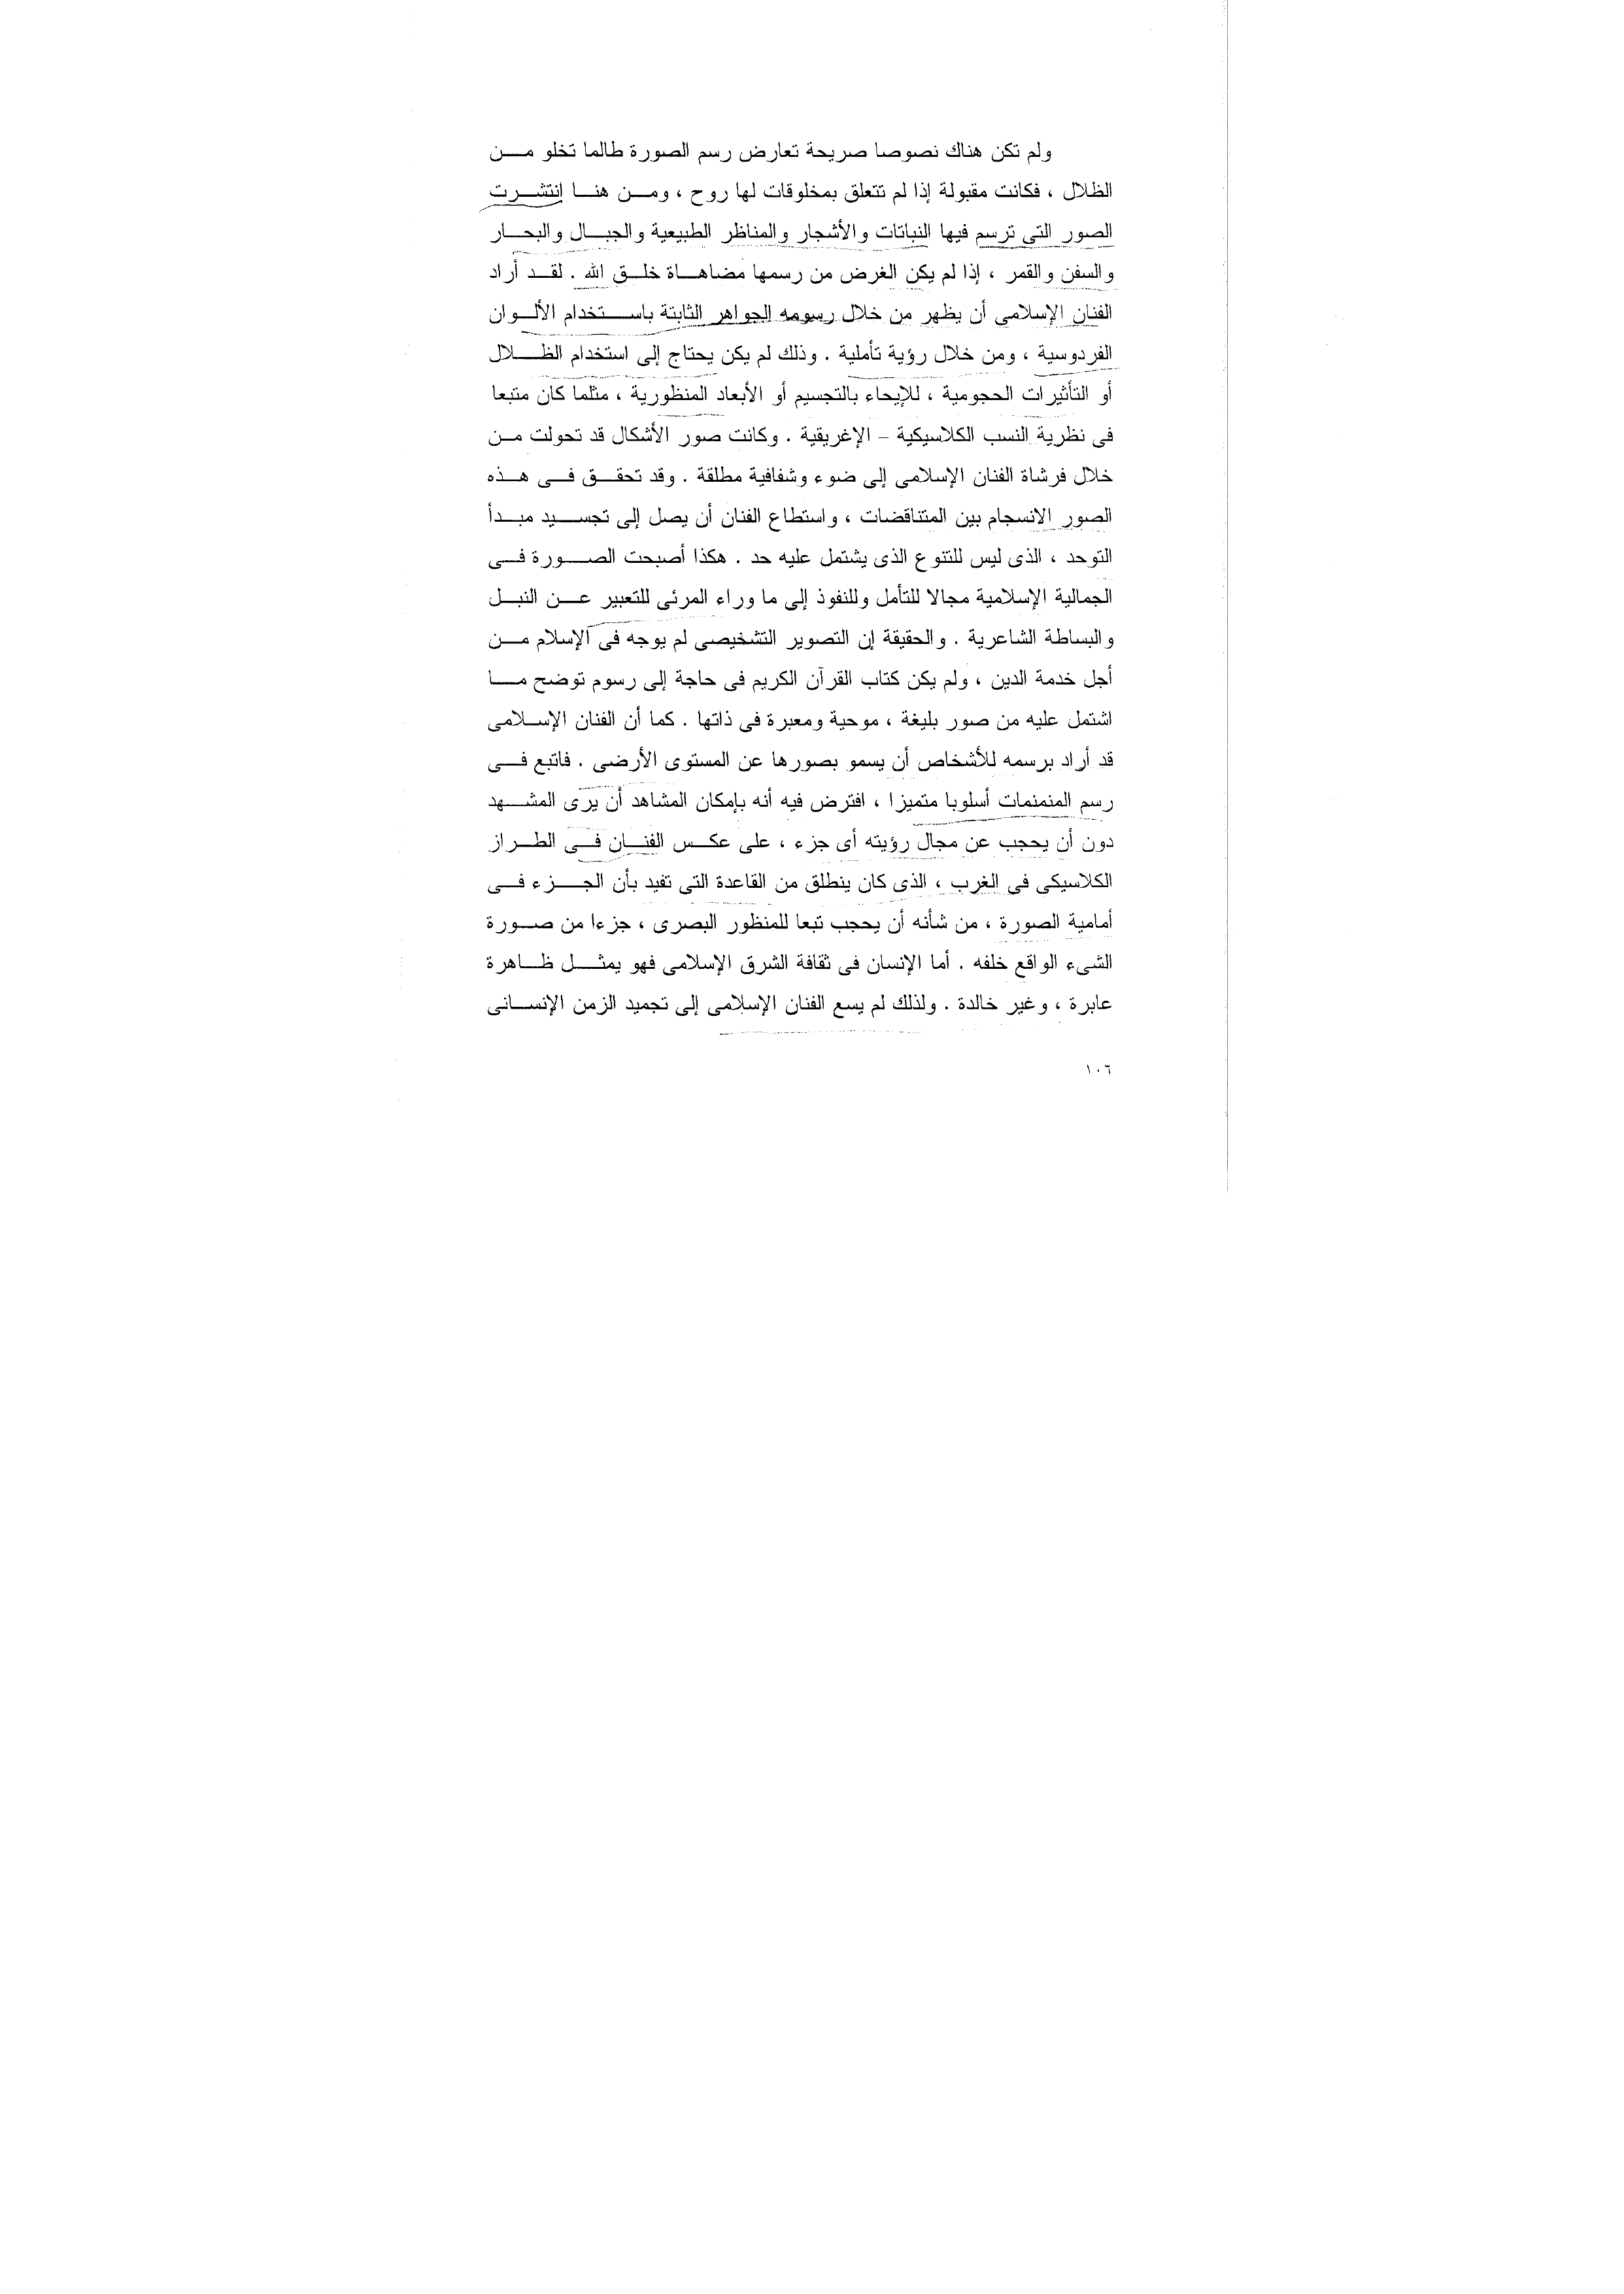 ولم تكن هناك نصوصا صريحة تعارض رسم الصورة طالما تخلو من
الظلال ، فكانت مقبولة إذا لم تتعلق بمخلوقات لها روح ، ومن هنا إنتشرت
الصور التى ترسم فيها النباتات والأشجار والمناظر الطبيعية والجبال والبحار
والسفن والقمر ، إذا لم يكن الغرض من رسمها مضاهاة خلق الله . لقد أراد
الفنان الإسلامى أن يظهر من خلال رسومه الجواهر الثابتة باستخدام الألوان
الفردوسية ، ومن خلال رؤية تأملية . وذلك لم يكن يحتاج إلى استخدام الظلال
أو التأثيرات الحجومية ، للإيحاء بالتجسيم أو الأبعاد المنظورية ، مثلما كان متبعا
فى نظرية النسب الكلاسيكية – الإغريقية . وكانت صور الأشكال قد تحولت من
خلال فرشاة الفنان الإسلامى إلى ضوء وشفافية مطلقة . وقد تحقق فى هذه
الصور الانسجام بين المتناقضات ، واستطاع الفنان أن يصل إلى تجسيد مبدأ
التوحد ، الذى ليس للتنوع الذى يشتمل عليه حد . هكذا أصبحت الصورة فى
الجمالية الإسلامية مجالا للتأمل وللنفوذ إلى ما وراء المرئى للتعبير عن النبل
والبساطة الشاعرية . والحقيقة إن التصوير التشخيصى لم يوجه فى الإسلام من
أجل خدمة الدين ، ولم يكن كتاب القرآن الكريم فى حاجة إلى رسوم توضح ما
اشتمل عليه من صور بليغة ، موحية ومعبرة فى ذاتها . كما أن الفنان الإسلامى
قد أراد برسمه للأشخاص أن يسمو بصورها عن المستوى الأرضى . فاتبع فى
رسم المنمنمات أسلوبا متميزا ، افترض فيه أنه بإمكان المشاهد أن يرى المشهد
دون أن يحجب عن مجال رؤيته أى جزء ، على عكس الفنان فى الطراز
الكلاسيكى فى الغرب ، الذى كان ينطلق من القاعدة التى تفيد بأن الجزء فى
أمامية الصورة ، من شأنه أن يحجب تبعا للمنظور البصرى ، جزءا من صورة
الشىء الواقع خلفه . أما الإنسان فى ثقافة الشرق الإسلامى فهو يمثل ظاهرة
عابرة ، وغير خالدة . ولذلك لم يسع الفنان الإسلامى إلى تجميد الزمن الإنسانى
١٠٦